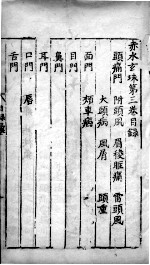 赤水玄珠第三卷目錄
頭痛門　附頭風　眉稜骨痛　雷頭風
大頭病　風屑　頭重
面門　頰車病
目門
鼻門
耳門
口門　唇
舌門